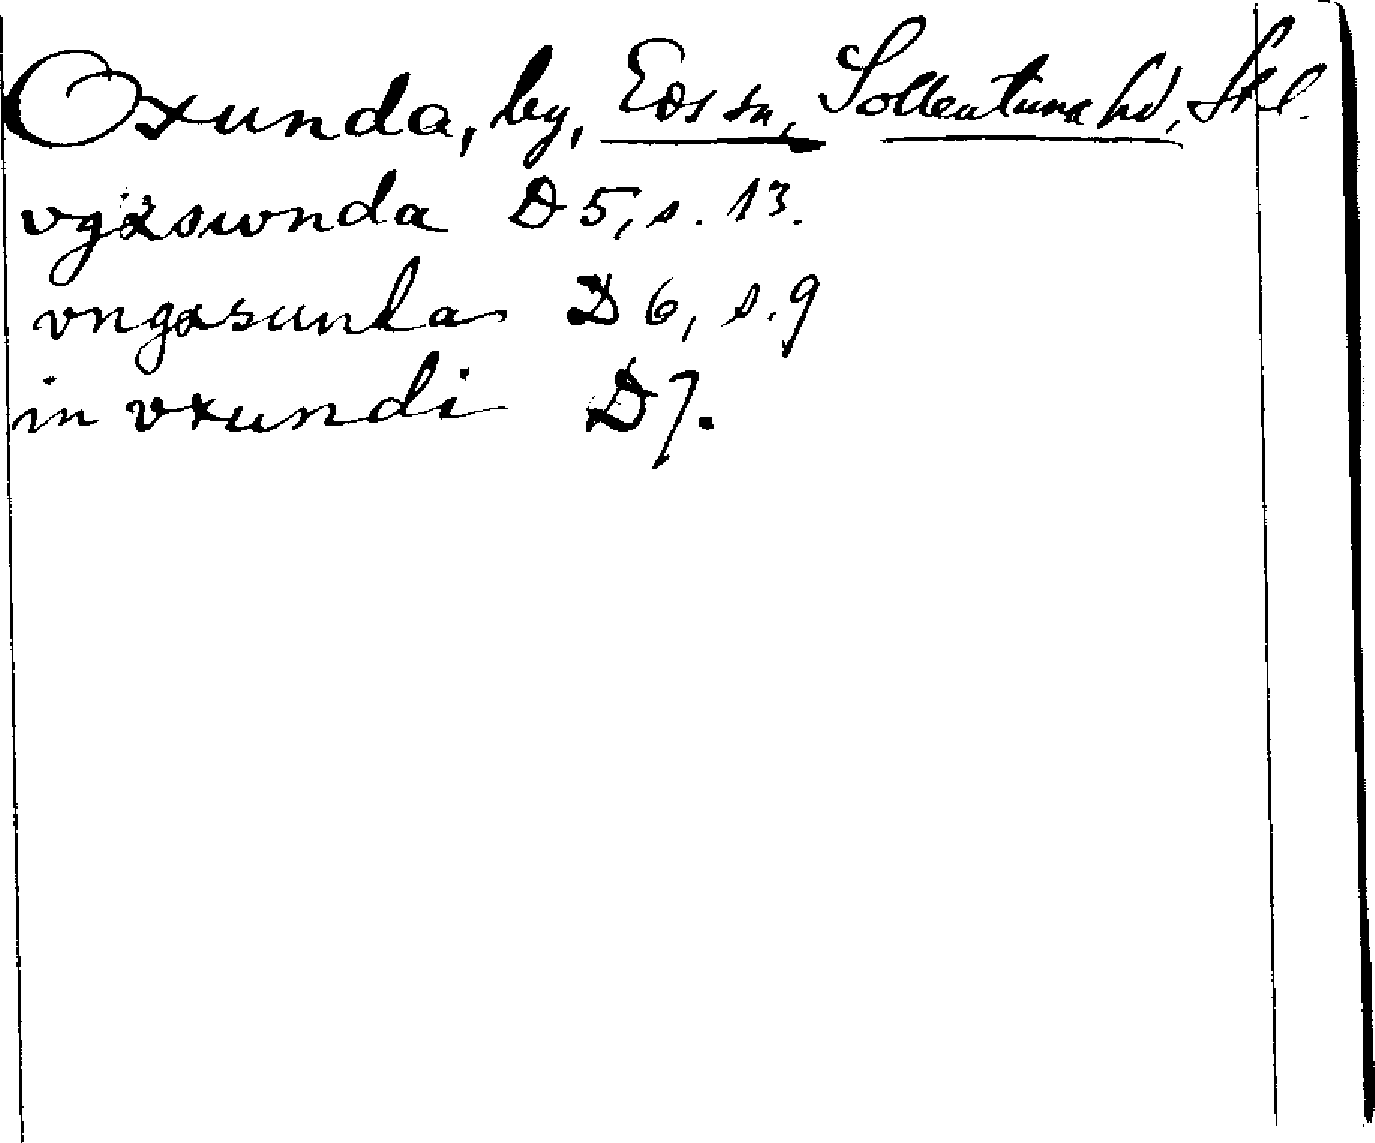 Oxunda, by, Eds sn, Sollentuna hd, Skl.
vgxswnda D 5, s. 13.
vngxsunda D 6, s. 9
in vxundi D 7.